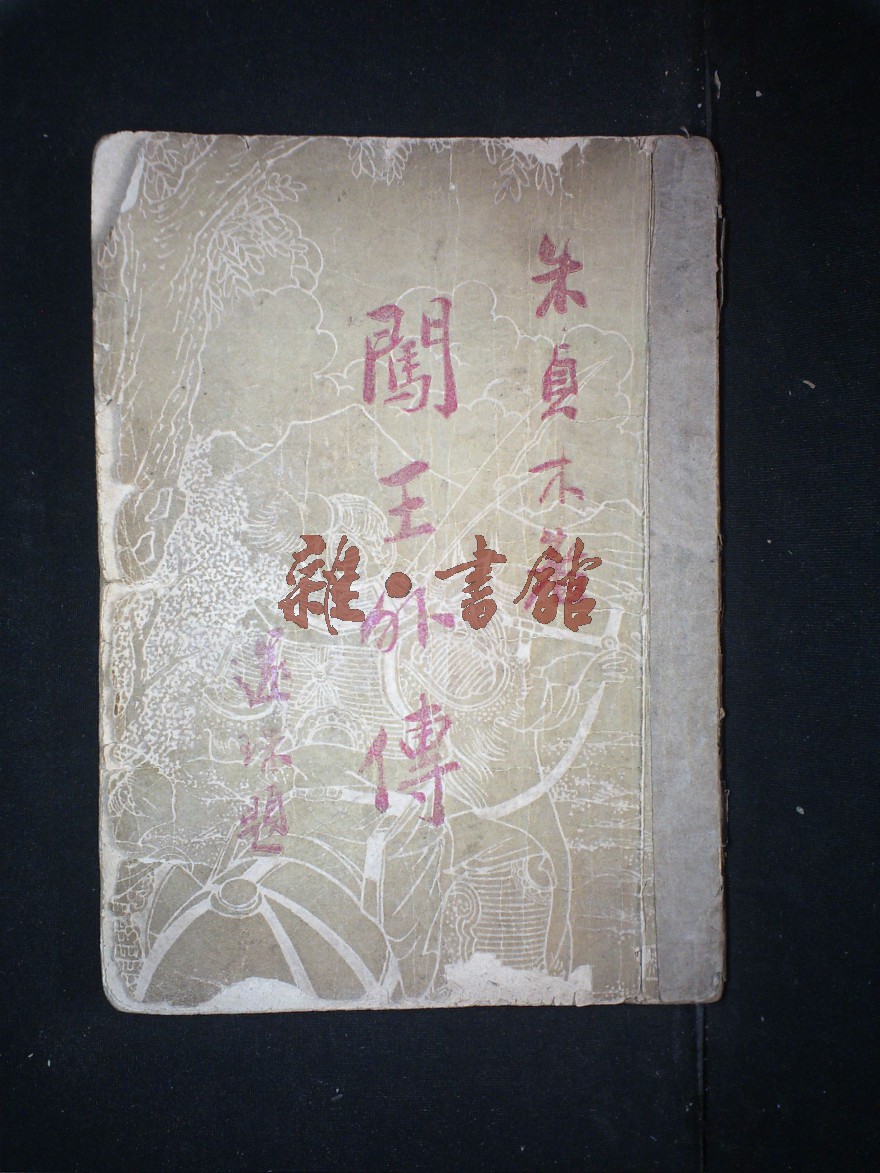 朱貞木著
闖王外傳
遜玖題
雜·書館